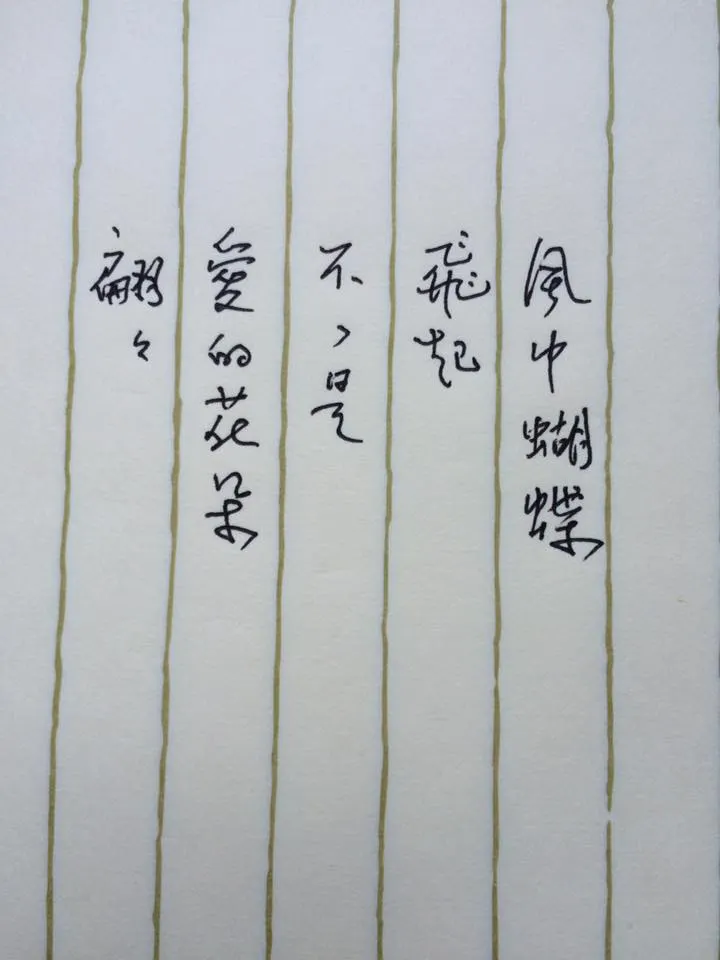 風中蝴蝶
飛起
不、是
愛的花朵
翩々